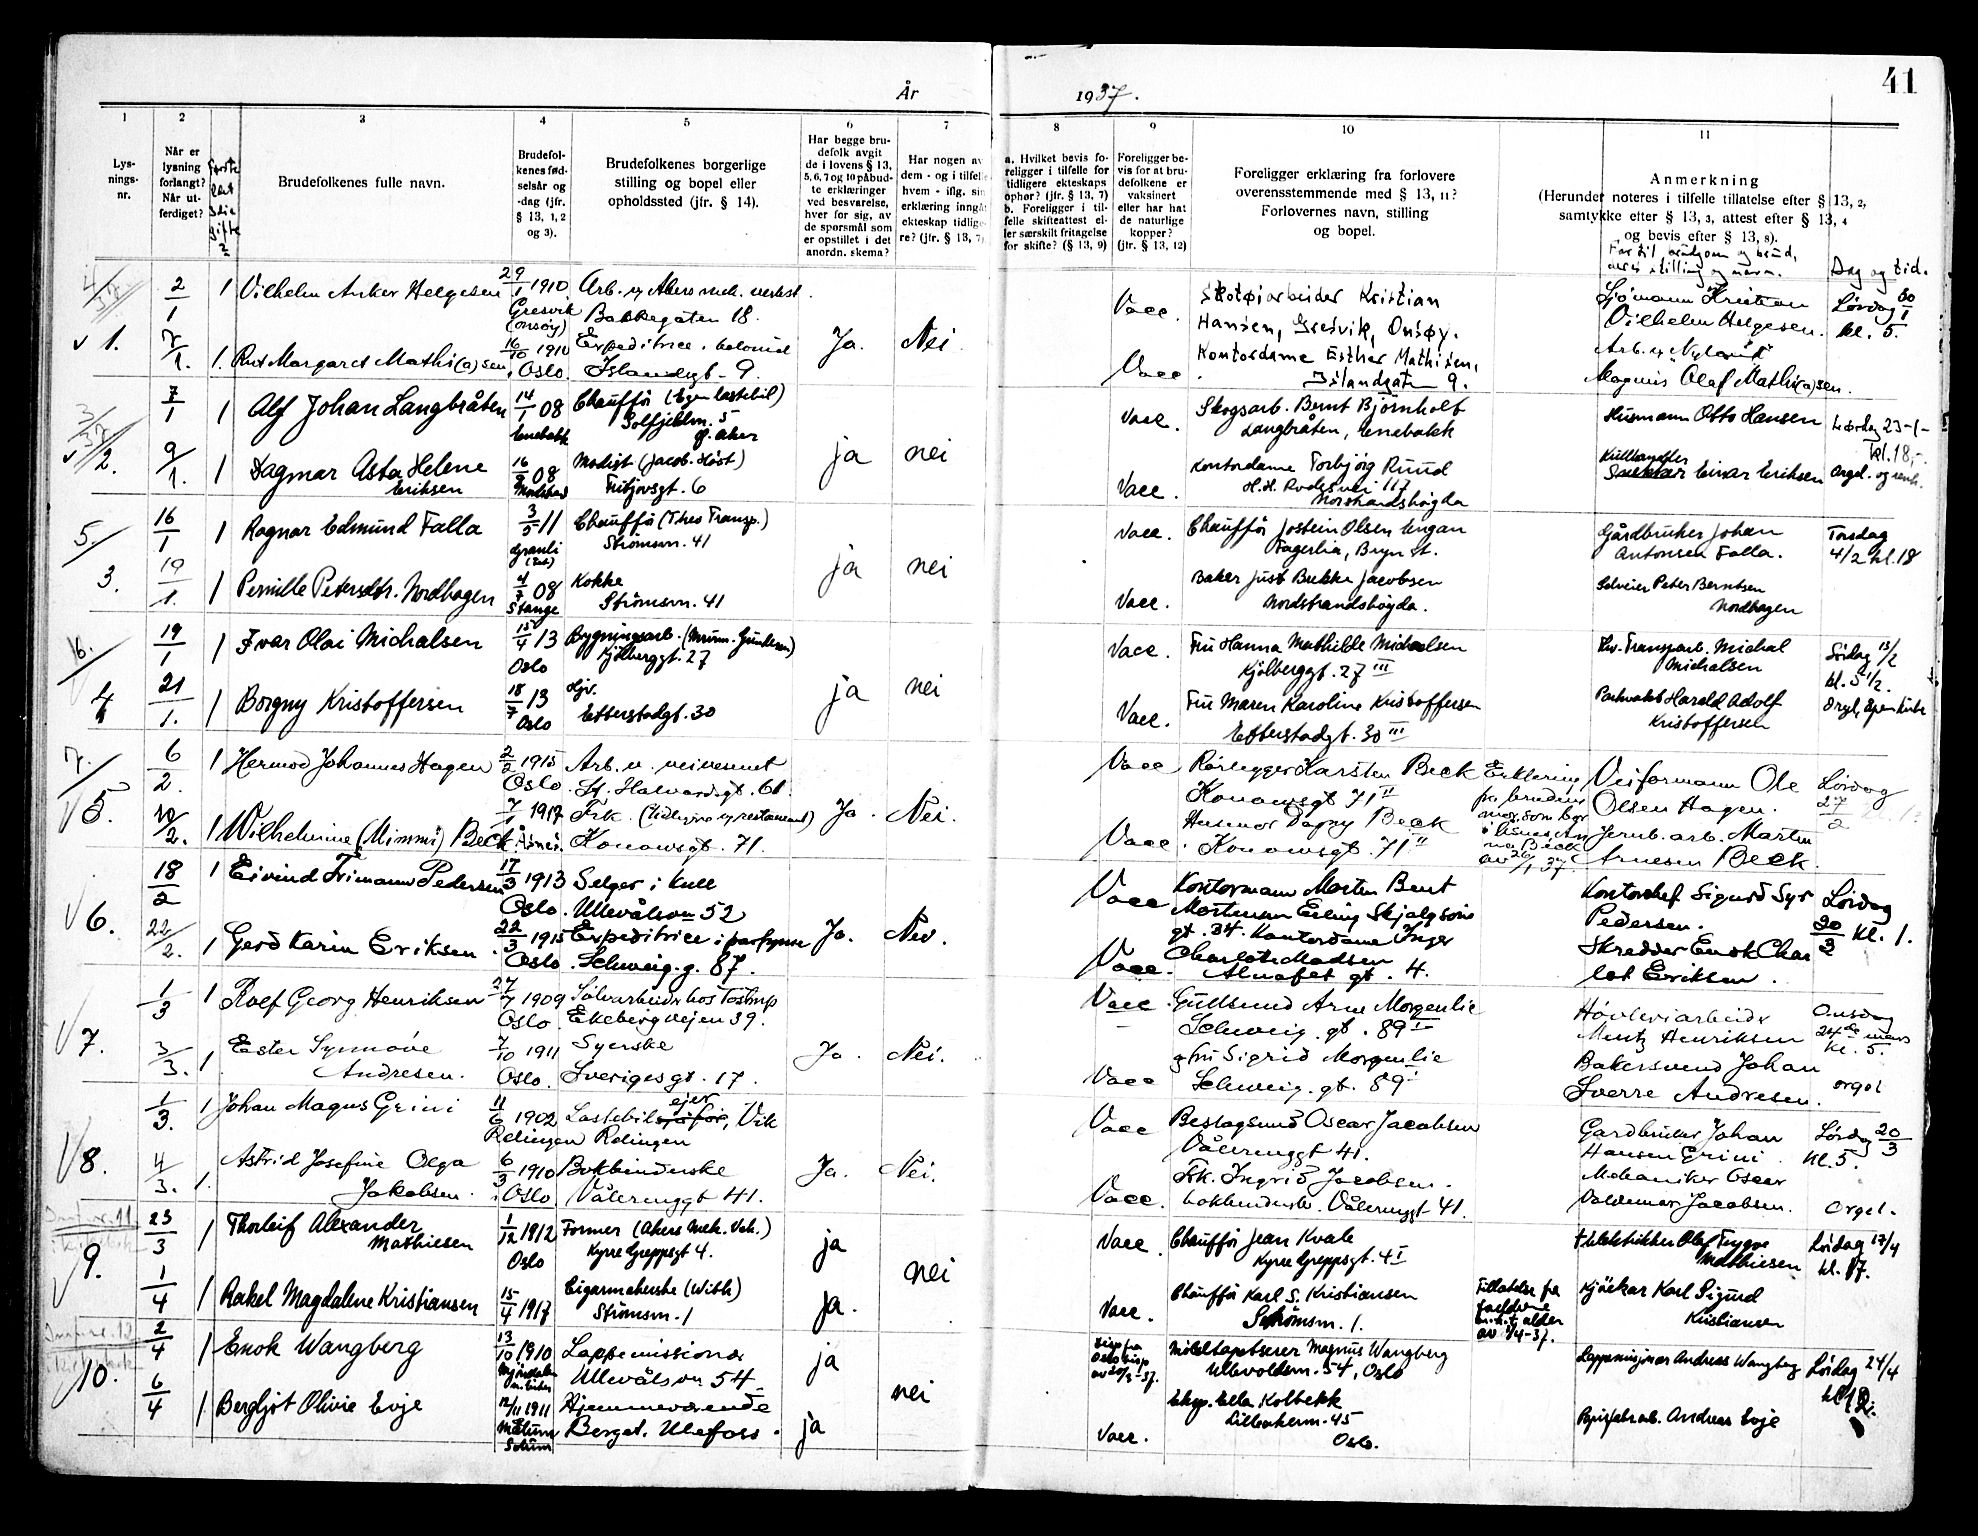 41
År 1937.
1 2 3 4 5 6 7 8 9 10 11
Lys-
nings-
nr.
Når er
lysning
forlangt?
Når ut-
ferdiget?
Brudefolkenes fulle navn.
Brudefol-
kenes fød-
selsår og
-dag (jfr.
§ 13, 1, 2
og 3).
Brudefolkenes borgerlige
stilling og bopel eller
opholdssted (jfr. § 14).
Har begge bru-
defolk avgit
de i lovens § 13,
5, 6, 7 og 10 påbud-
te erklæringer
ved besvarelse,
hver for sig, av
de spørsmål som
er opstillet i det
anordn. skema?
Har nogen av
dem - og i tilfelle
hvem - iflg. sin
erklæring inngått
ekteskap tidlige-
re? (jfr. § 13, 7)
a. Hvilket bevis fo-
religger i tilfelle for
tidligere ekteskaps
ophør? (jfr. § 13, 7)
b. Foreligger i til-
felle skifteattest el-
ler særskilt fritagelse
for skifte? (§ 13, 9)
Foreligger be-
vis for at bru-
defolkene er
vaksinert
eller har hat
de naturlige
kopper?
(jfr. § 13, 12)
Foreligger erklæring fra forlovere
overensstemmende med § 13, 11?
Forlovernes navn, stilling
og bopel.
Anmerkning
(Herunder noteres i tilfelle tillatelse efter § 13, 2,
samtykke etter § 13, 3, attest efter § 13, 4
og bevis efter § 13, 8).
Far til brudgom og brud,
deres stilling og navn.
Dag og tid.
1. 2/1 1 Vilhelm Anker Helgesen 29/1 1910 Arb. v/ Akers mek. verkst.
Gresvik (Onsøy) Bakkegaten 18.
Vacc. Skotøiarbeider Kristian
Hansen, Gresvik, Onsøy.
Sjømann Kristian
Vilhelm Helgesen.
Lørdag 30/1
kl. 5.
7/1. 1. Rut Margaret Mathi(a)sen 16/10 1910 Expeditrice, kolonial
Oslo. Islandsgt. 9.
Ja. Nei.
Vacc. Kontordame Esther Mathisen,
Islandsgaten 9.
Magnus Olaf Mathi(a)sen.
2. 7/1 1 Alf Johan Langbråten 14/1 08 Chauffør (Egen lastebil)
Enebakk Solfjellsvn. 5
Ø. Aker
Vacc. Skogsarb. Bernt Bjørnholt
Langbråten, Enebakk
Husmann Otto Hansen Lørdag 23-1-
kl. 18,-
9/1. 1 Dagmar Asta Helene
Eriksen
16/9 08 Modist (Jacob Høst)
Fritjovsgt. 6
ja nei
Vacc. Kontordame Torbjørg Ruud
Nordstrandshøgda
Einar Eriksen
3. 16/1 1 Ragnar Edmund Falla 3/5 11 Chauffør (Thes Transp.)
Strömsvn. 41
Vacc. Chauffør Jostein Olsen Engan
Fagerlia, Bryn st.
Gårdbruker Johan
Antonsen Falla.
Torsdag
4/2 kl. 18
19/1. 1 Pernille Petersdtr. Nordhagen 4/7 08 Kokke
Stange Strömsvn. 41
ja nei
Vacc. Baker Just Brekke Jacobsen
Nordstrandshögda.
Selveier Peter Berntsen
Nordhagen
4 19/1 1 Ivar Olai Michalsen 15/4 13 Bygningsarb. (Murm. Gundersen)
Oslo Kjölberggt. 27
Vacc. Fru Hanna Mathilde Michalsen
Kjölberggt. 27 III
Transparb. Michal
Michalsen
Lördag 13/2
kl. 5 1/2.
21/1. 1 Borgny Kristoffersen 18/7 13 Hjv.
Oslo Etterstadgt. 30
ja nei
Vacc. Fru Maren Karoline Kristoffersen
Etterstadgt. 30 III
Harald Adolf
Kristoffersen
5. 6/2. 1 Hermod Johannes Hagen 2/2 1915 Arb. v. veivesenet
Oslo. St. Halvardsgt. 61.
Vacc Rørlegger Karsten Beck
Konowsgt 71 II
Erklæring
fra brudens
mor, som bor
i Åsnes, An
na Beck
av 26/1 37.
Veiformann Ole
Olsen Hagen.
Lördag
27/2
10/2. 1 Wilhelmine (Mimmi) Beck 7/1 1917 Frk.
Åsnes. Konowsgt. 71.
Ja. Nei.
Vacc. Husmor Dagny Beck
Konowsgt. 71 II
Jernb. arb. Martin
Arnesen Beck.
6. 18/2 1 Eivind Frimann Pedersen 17/3 1913 Selger i kull
Oslo. Ullevålsvn 52
Vacc Kontormann Morten Bent
Mortensen Erling Skjalgsöns
gt. 34.
Kontorchef Sigurd Syr
Pedersen.
Lördag
20/3 kl. 1.
22/2. 1 Gerd Karin Eriksen 22/3 1915 Expeditrice i parfyme
Oslo. Schweig. g. 87.
Ja. Nei.
Vacc. Kontordame Inger
Charlotte Madsen
Almafet gt. 4.
Skredder Enok Char
lot Eriksen.
7. 1/3 1 Rolf Georg Henriksen 27/7 1909 Sølvarbeider hos Tostrup
Oslo. Ekebergveien 39.
Vacc. Gullsmed Arne Morgenlie
Schweig. gt. 89 I
Høvleriarbeider
Mentz Henriksen
Onsdag
24de mars
kl. 5.
3/3. 1. Ester Synnöve
Andresen.
7/10 1911 Syerske
Oslo. Sverigesgt. 17.
Ja. Nei.
Vacc Fru Sigrid Morgenlie
Schweig. gt. 89 I
Bakersvend Johan
Sverre Andresen. orgel
8. 1/3. 1 Johan Magnus Grini 11/6 1902 Lastebileier, Vik
Røliingen Rølingen
Vacc Beslagsmed Oscar Jacobsen
Vålerenggt 41.
Gardbruker Johan
Hansen Grini.
Lördag 20/3
Kl. 5.
4/3. 1. Astrid Josefine Olga
Jakobsen.
6/3 1910 Bokbinderske
Oslo Vålerenggt 41.
Ja. Nei.
Vacc. Frk. Ingrid Jacobsen.
bokbinderske. Vålerenggt 41.
Mekaniker Oscar
Valdemar Jacobsen. orgel.
9. 23/3 1 Thorleif Alexander
Mathiesen
1/12 1912 Former (Akers Mek. Verk.)
Oslo Kyrre Greppsgt 4.
ja
Vacc. Chauffør Jean Kvale
Kyrre Greppsgt. 4 I
Olaf Trygve
Mathiesen
Lördag 17/4
kl. 17.
1/4 1 Rakel Magdalene Kristiansen 15/4 1917 Cigarmakerske (With)
Strömsvn. 1
ja. nei
Vacc. Chauffør Karl S. Kristiansen
Strömsvn. 1.
Tillatelse fra
foreldrene
m.h.t. alder
av 1/4-37.
Kjörekar Karl Sigurd
Kristiansen
10. 2/4 1 Enok Wangberg 13/10 1910 Lappemissionær
Mjöndalen Ullevålsvn 54
ja
Disp fra
Oslo bisp
Möbeltapetserer Magnus Wangberg
Ullevoldsvn. 54, Oslo
Lappmisjonær Andreas Wangberg Lördag 24/4
6/4 1 Bergljot Olivie Evje 12/11 1911 Hjemmeværende
Melum
Solum
Berget, Ulefoss.
ja nei
Vacc. Eksp. Ella Kolbekk
45
Oslo.
Andreas Evje